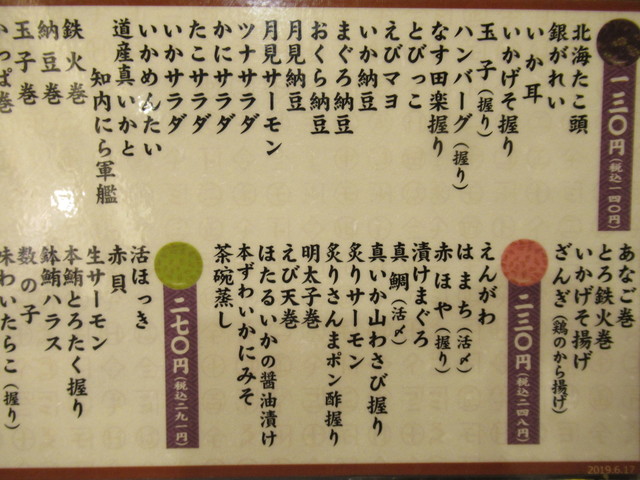 一三〇円（税込一四〇円）
北海たこ頭
銀がれい
いか耳
いかげそ握り
玉子（握り）
ハンバーグ（握り）
なす田楽握り
とびっこ
えびマヨ
いか納豆
まぐろ納豆
おくら納豆
月見納豆
月見サーモン
ツナサラダ
かにサラダ
たこサラダ
いかサラダ
いかめんたい
道産真いかと
知内にら軍艦
鉄火巻
納豆巻
玉子巻
かっぱ巻
あなご巻
とろ鉄火巻
いかげそ揚げ
ざんぎ（鶏のから揚げ）
二三〇円（税込二四八円）
えんがわ
はまち（活〆）
赤ほや（握り）
漬けまぐろ
真鯛（活〆）
真いか山わさび握り
炙りサーモン
炙りさんまポン酢握り
明太子巻
えび天巻
ほたるいかの醤油漬け
本ずわいかにみそ
茶碗蒸し
二七〇円（税込二九一円）
活ほっき
赤貝
生サーモン
本鮪とろたく握り
鉢鮪ハラス
数の子
味わいたらこ（握り）
2019.6.17